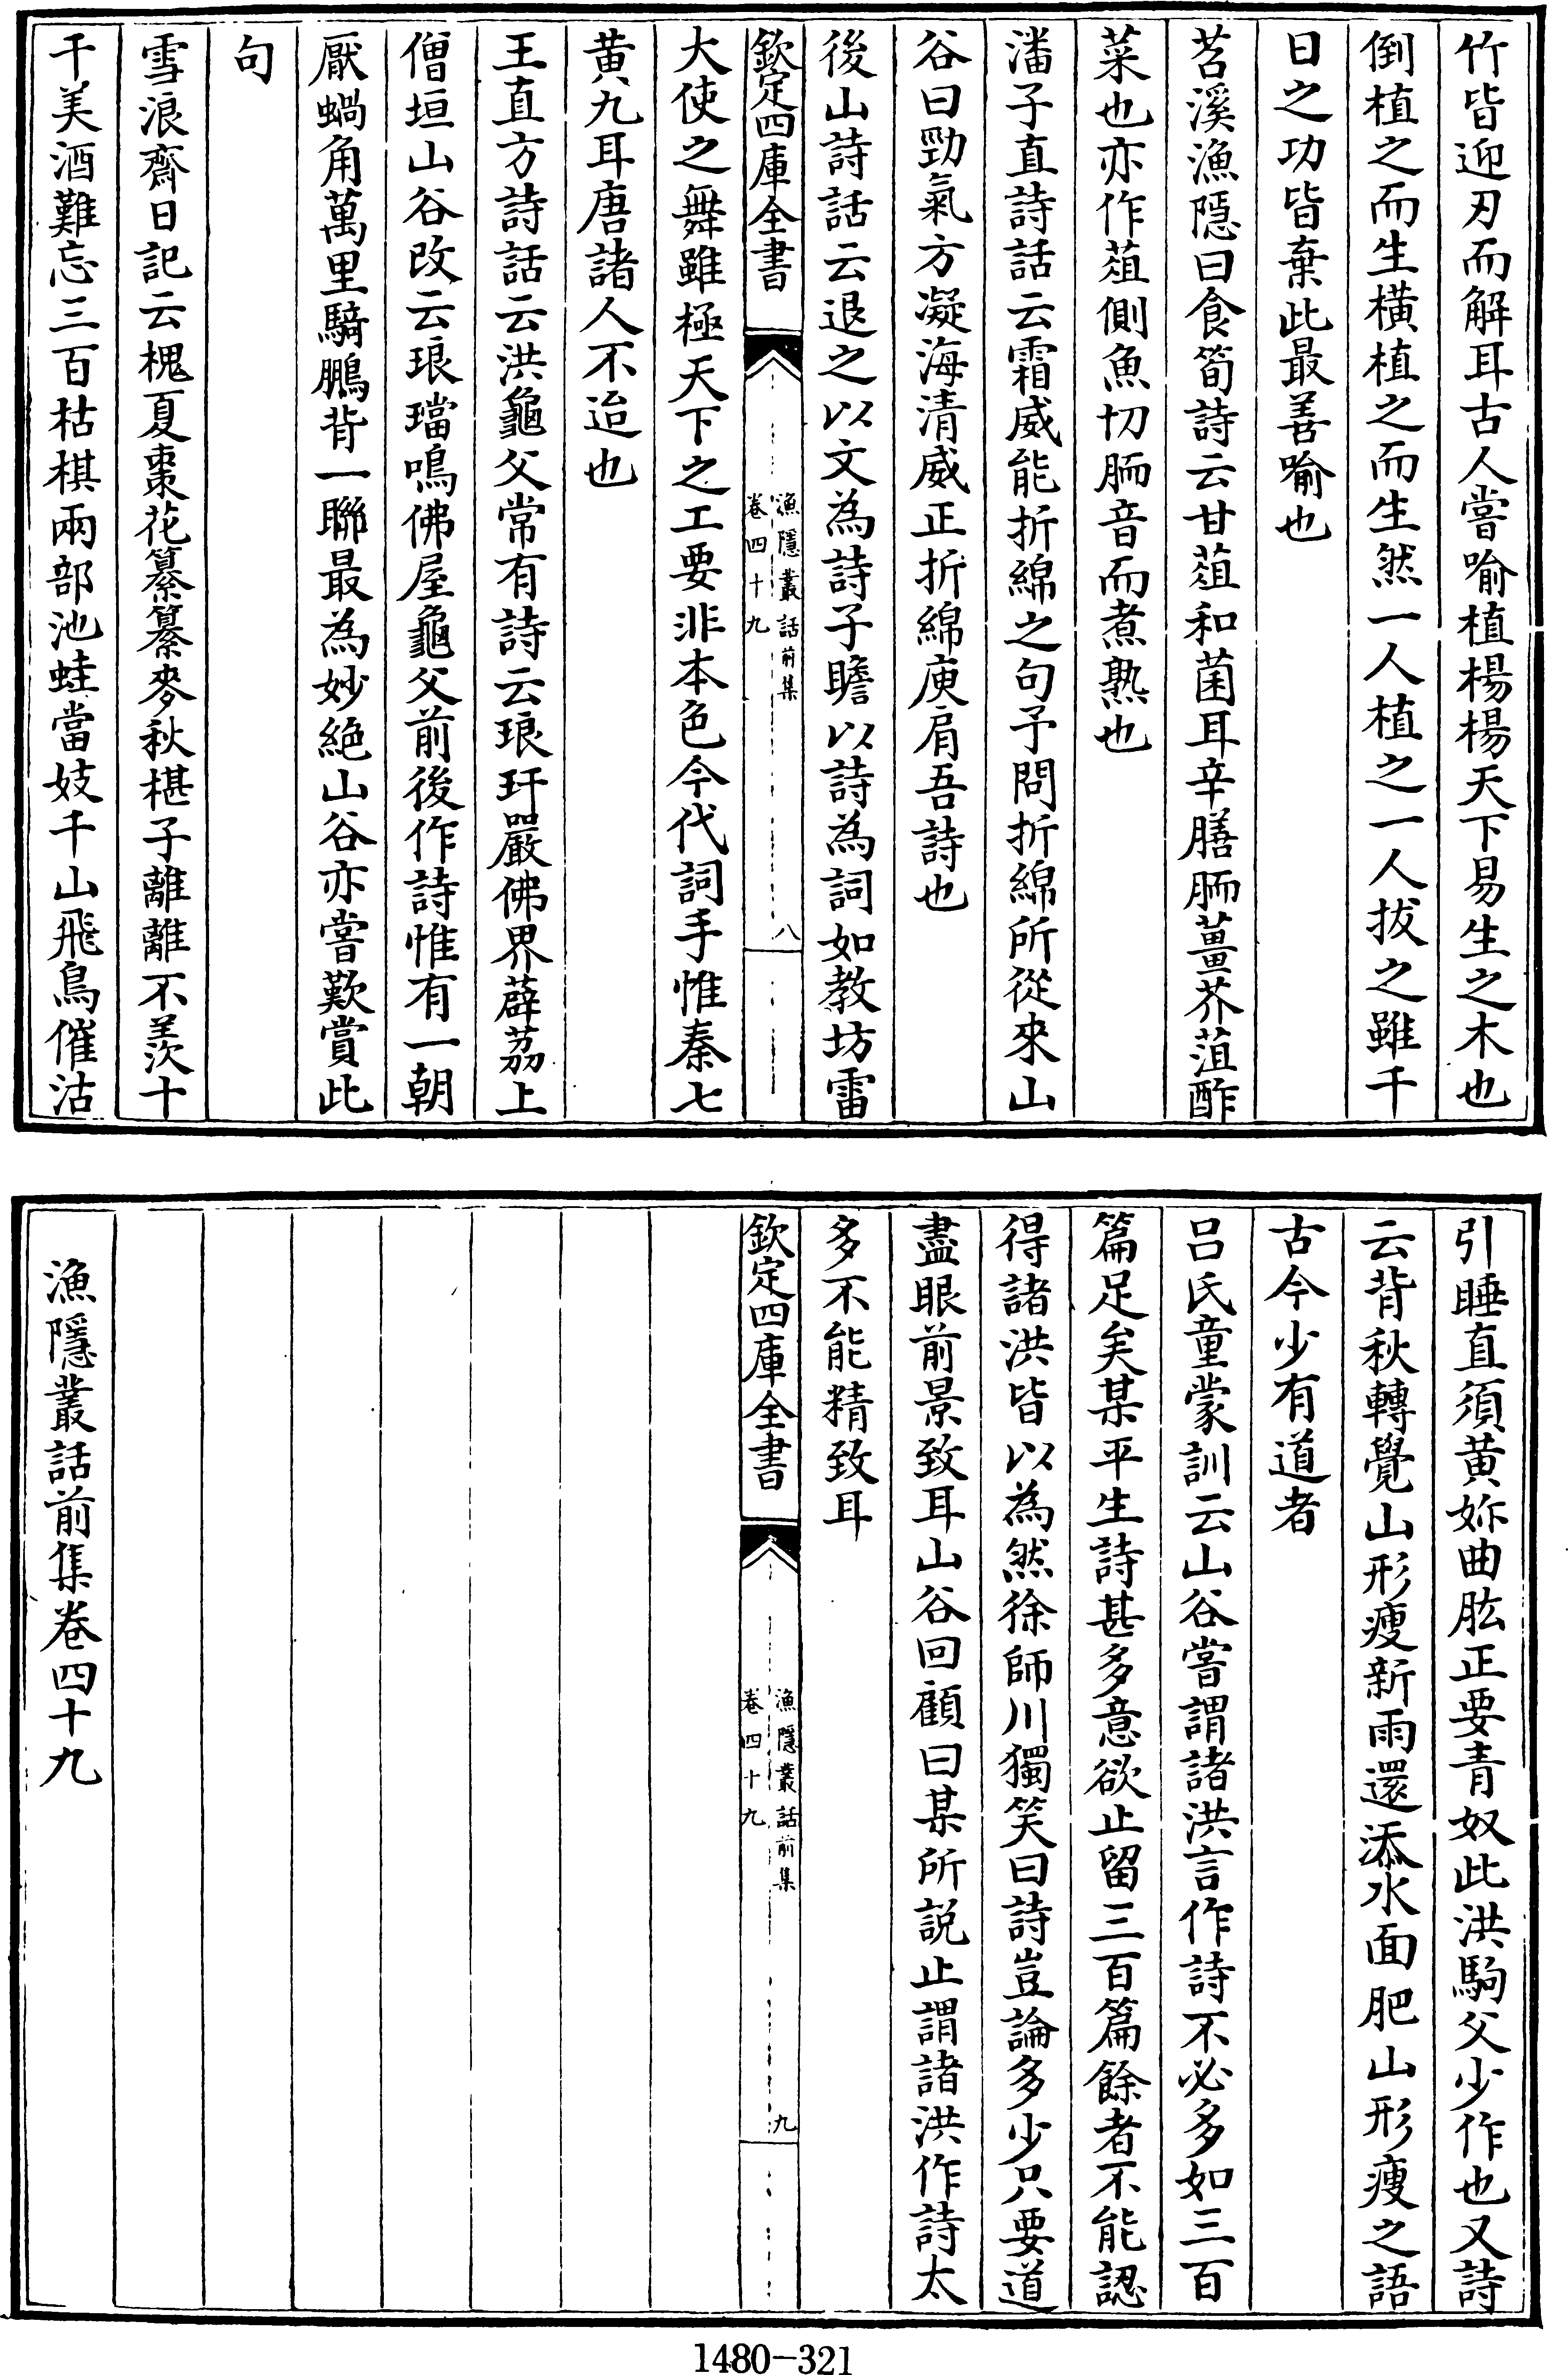 竹皆迎刃而解耳古人嘗喻植楊楊天下易生之木也
倒植之而生橫植之而生然一人植之一人拔之雖千
日之功皆棄此最善喻也
苕溪漁隱曰食筍詩云甘葅和菌耳辛膳胹薑芥菹酢
菜也亦作葅側魚切胹音而煮熟也
潘子直詩話云霜威能折綿之句予問折綿所從來山
谷曰勁氣方凝海清威正折綿庾肩吾詩也
後山詩話云退之以文為詩子瞻以詩為詞如教坊雷
欽定四庫全書
漁隱叢話前集
卷四十九
八
大使之舞雖極天下之工要非本色今代詞手惟秦七
黄九耳唐諸人不迨也
王直方詩話云洪龜父常有詩云琅玕嚴佛界薜荔上
僧垣山谷改云琅璫鳴佛屋龜父前後作詩惟有一朝
厭蝸角萬里騎鵬背一聯最為妙絶山谷亦嘗歎賞此
句
雪浪齋日記云槐夏棗花纂纂麥秋椹子離離不羨十
千美酒難忘三百枯棋兩部池蛙當妓千山飛鳥催沽
引睡直須黄妳曲肱正要青奴此洪駒父少作也又詩
云背秋轉覺山形瘦新雨還添水面肥山形瘦之語
古今少有道者
吕氏童蒙訓云山谷嘗謂諸洪言作詩不必多如三百
篇足矣某平生詩甚多意欲止留三百篇餘者不能認
得諸洪皆以為然徐師川獨笑曰詩豈論多少只要道
盡眼前景致耳山谷回顧曰某所説止謂諸洪作詩太
多不能精致耳
欽定四庫全書
漁隱叢話前集
卷四十九
九
漁隱叢話前集卷四十九
1480-321